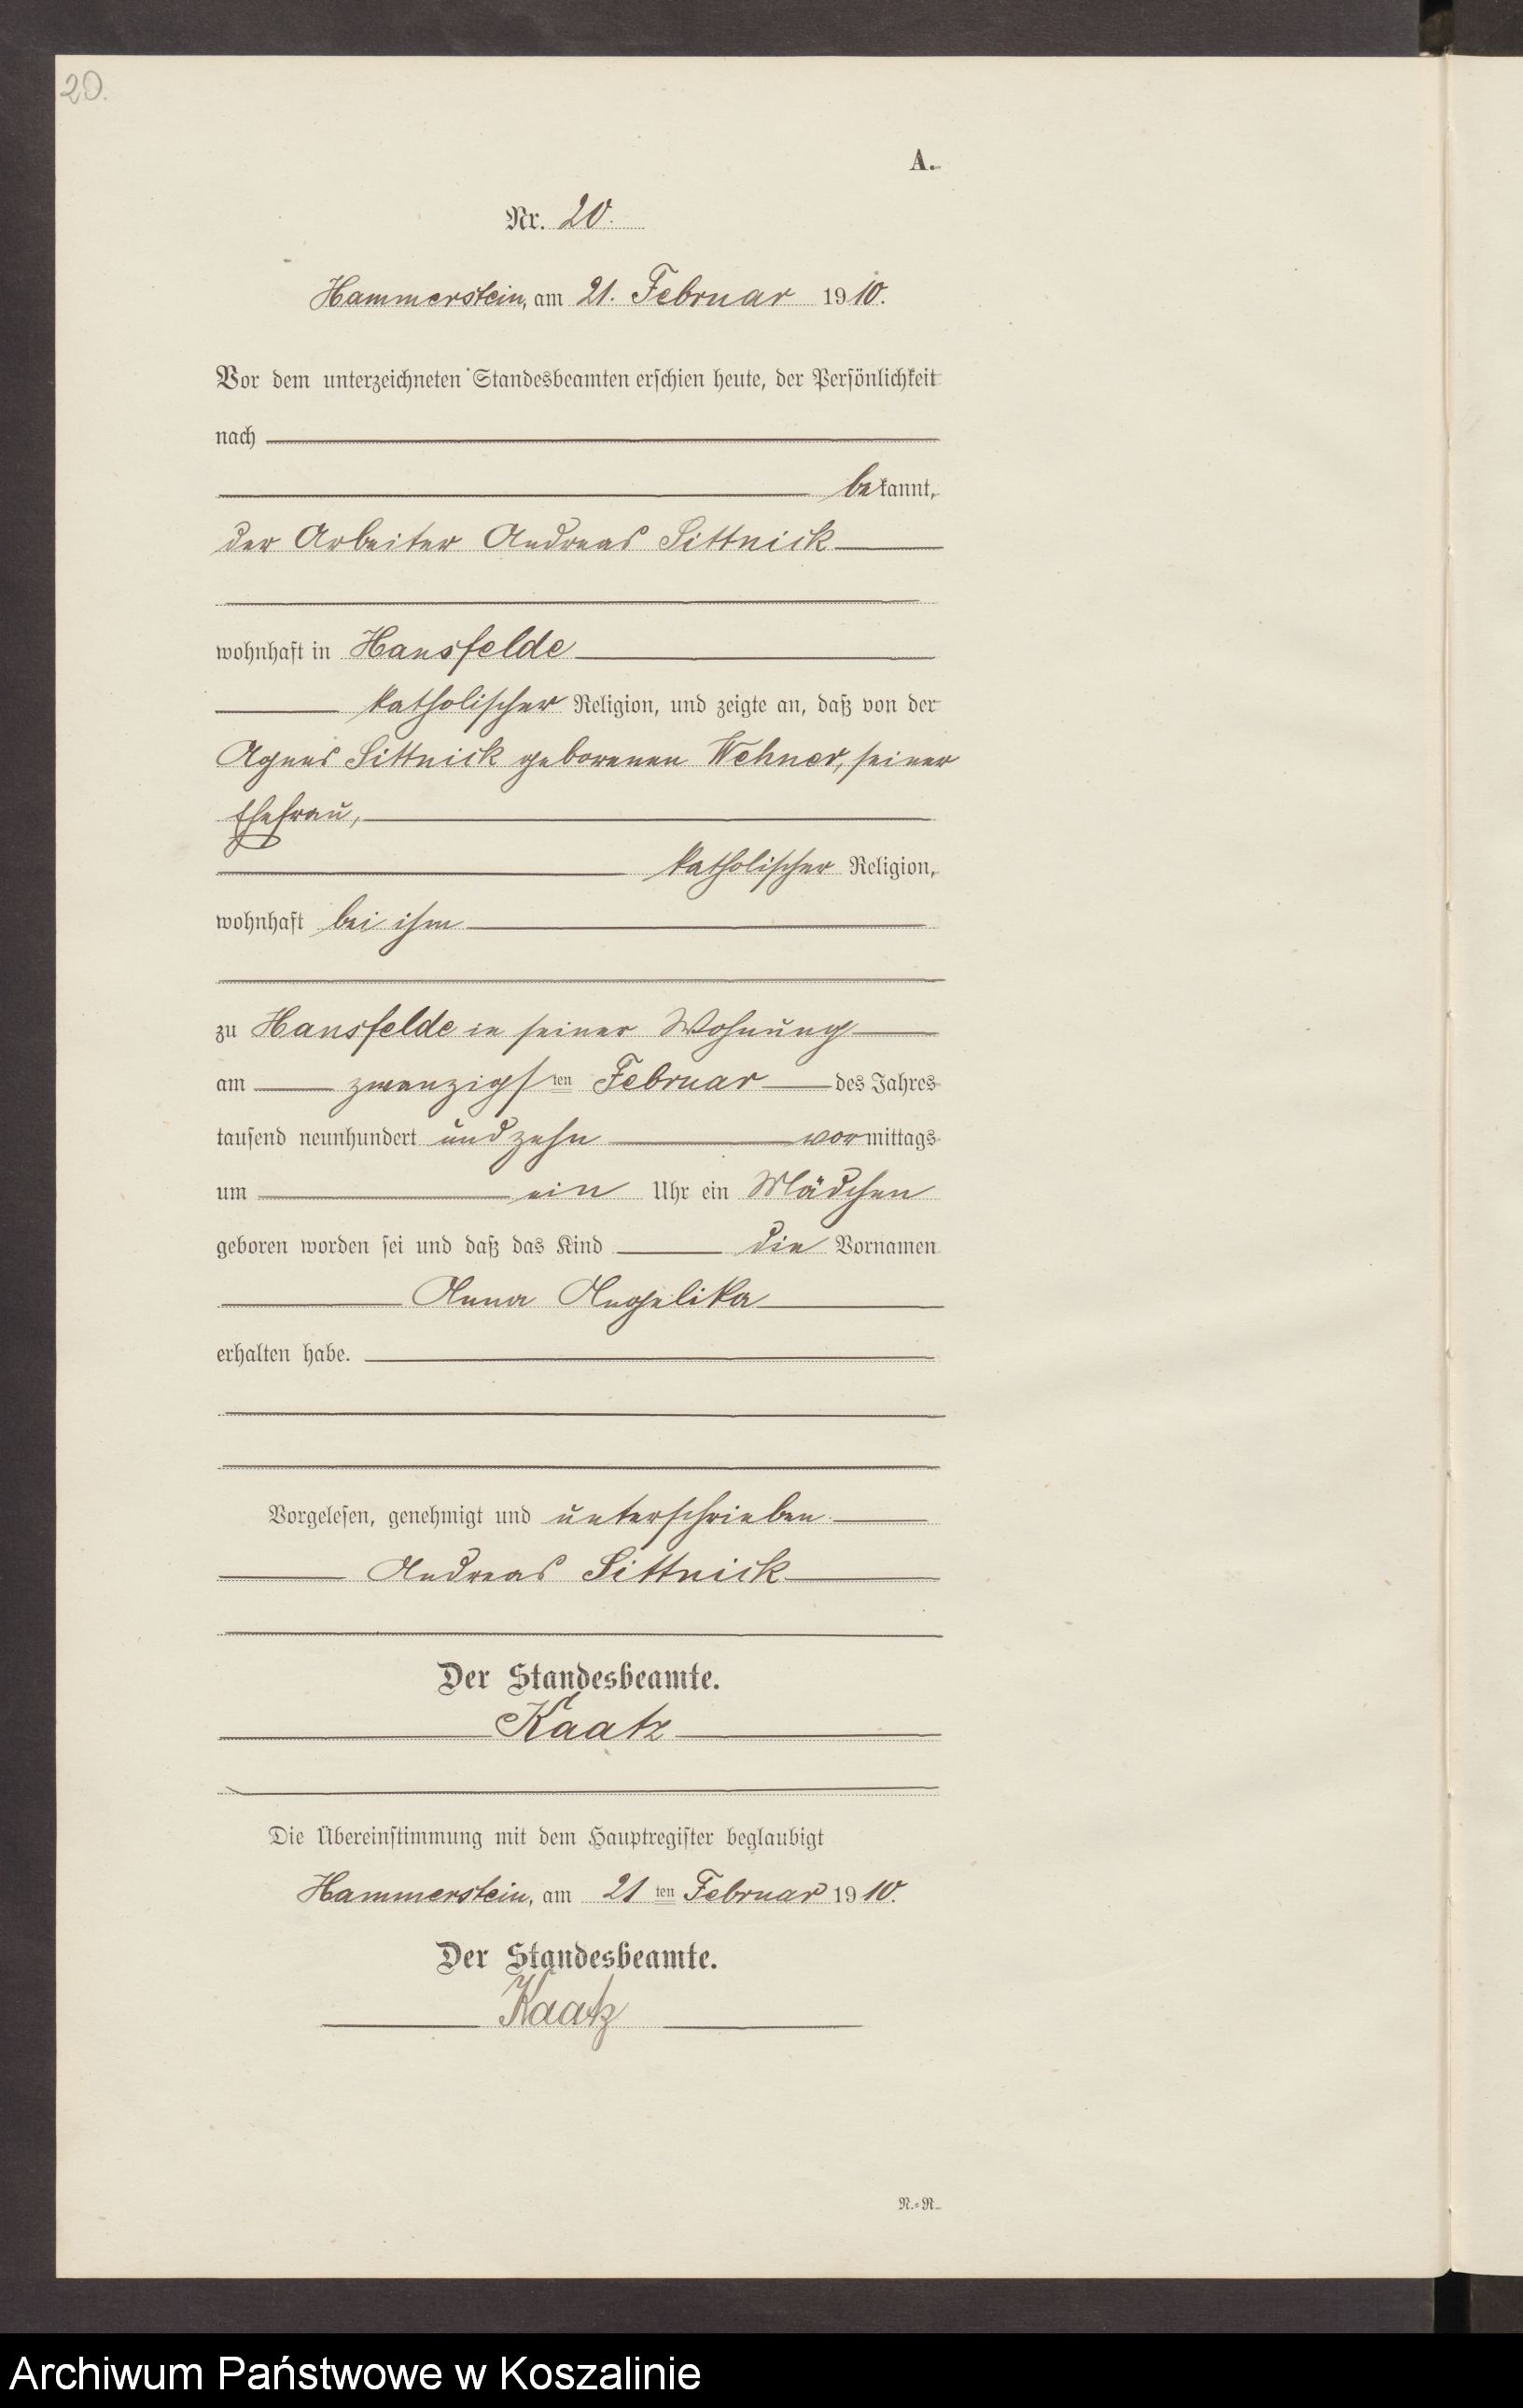 20.
A.
Nr. 20.
Hammerstein, am 21. Februar 1910.
Vor dem unterzeichneten Standesbeamten erschien heute, der Persönlichkeit
nach
bekannt,
der Arbeiter Andreas Sittnick
wohnhaft in Hansfelde
katholischer Religion, und zeigte an, daß von der
Agnes Sittnick geborenen Wehner, seiner
Ehefrau,
katholischer Religion,
wohnhaft bei ihm
zu Hansfelde in seiner Wohnung
am zwanzigsten Februar des Jahres
tausend neunhundert und zehn vormittags
um ein Uhr ein Mädchen
geboren worden sei und daß das Kind die Vornamen
Anna Angelika
erhalten habe.
Vorgelesen, genehmigt und unterschrieben
Andreas Sittnick
Der Standesbeamte.
Kaatz
Die Übereinstimmung mit dem Hauptregister beglaubigt
Hammerstein, am 21ten Februar 1910.
Der Standesbeamte.
Kaatz
N.=R.
Archiwum Państwowe w Koszalinie